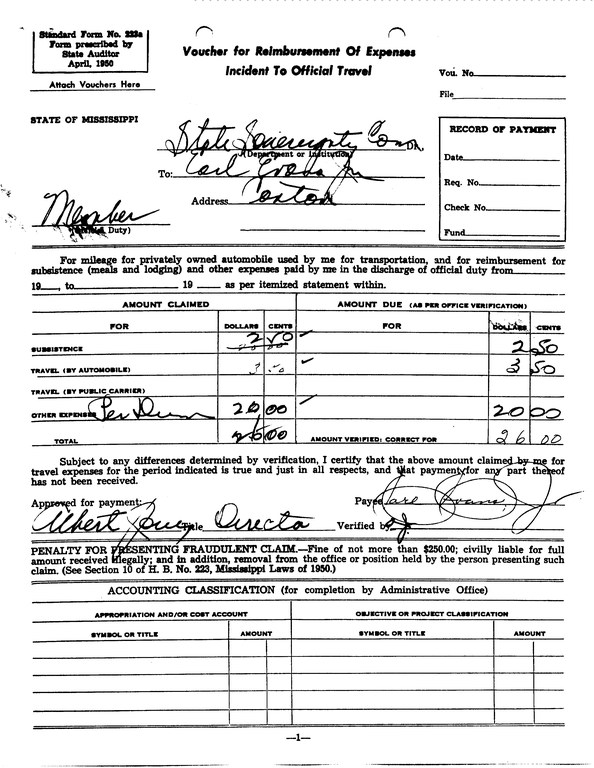 Standard Form No. 223a
Form prescribed by
State Auditor
April, 1950
Attach Vouchers Here
Voucher for Reimbursement Of Expenses
Incident To Official Travel
Vou. No.
File
STATE OF MISSISSIPPI
State Sovereignty Com DR.
(Department or Institution)
To: Earl Evans Jr
Address Canton
Member
Duty)
RECORD OF PAYMENT
Date
Req. No.
Check No.
Fund
For mileage for privately owned automobile used by me for transportation, and for reimbursement for
subsistence (meals and lodging) and other expenses paid by me in the discharge of official duty from
19 , to 19 as per itemized statement within.
AMOUNT CLAIMED AMOUNT DUE (AS PER OFFICE VERIFICATION)
FOR DOLLARS CENTS FOR DOLLARS CENTS
SUBSISTENCE 2 50 2 50
TRAVEL (BY AUTOMOBILE) 3 50 3 50
TRAVEL (BY PUBLIC CARRIER)
OTHER EXPENSES Per Diem 20 00 20 00
TOTAL 26 00 AMOUNT VERIFIED: CORRECT FOR 26 00
Subject to any differences determined by verification, I certify that the above amount claimed by me for
travel expenses for the period indicated is true and just in all respects, and that payment for any part thereof
has not been received.
Approved for payment: Payee Earl Evans Jr
Albert Jones Title Director Verified by
PENALTY FOR PRESENTING FRAUDULENT CLAIM.—Fine of not more than $250.00; civilly liable for full
amount received illegally; and in addition, removal from the office or position held by the person presenting such
claim. (See Section 10 of H. B. No. 223, Mississippi Laws of 1950.)
ACCOUNTING CLASSIFICATION (for completion by Administrative Office)
APPROPRIATION AND/OR COST ACCOUNT OBJECTIVE OR PROJECT CLASSIFICATION
SYMBOL OR TITLE AMOUNT SYMBOL OR TITLE AMOUNT
—1—